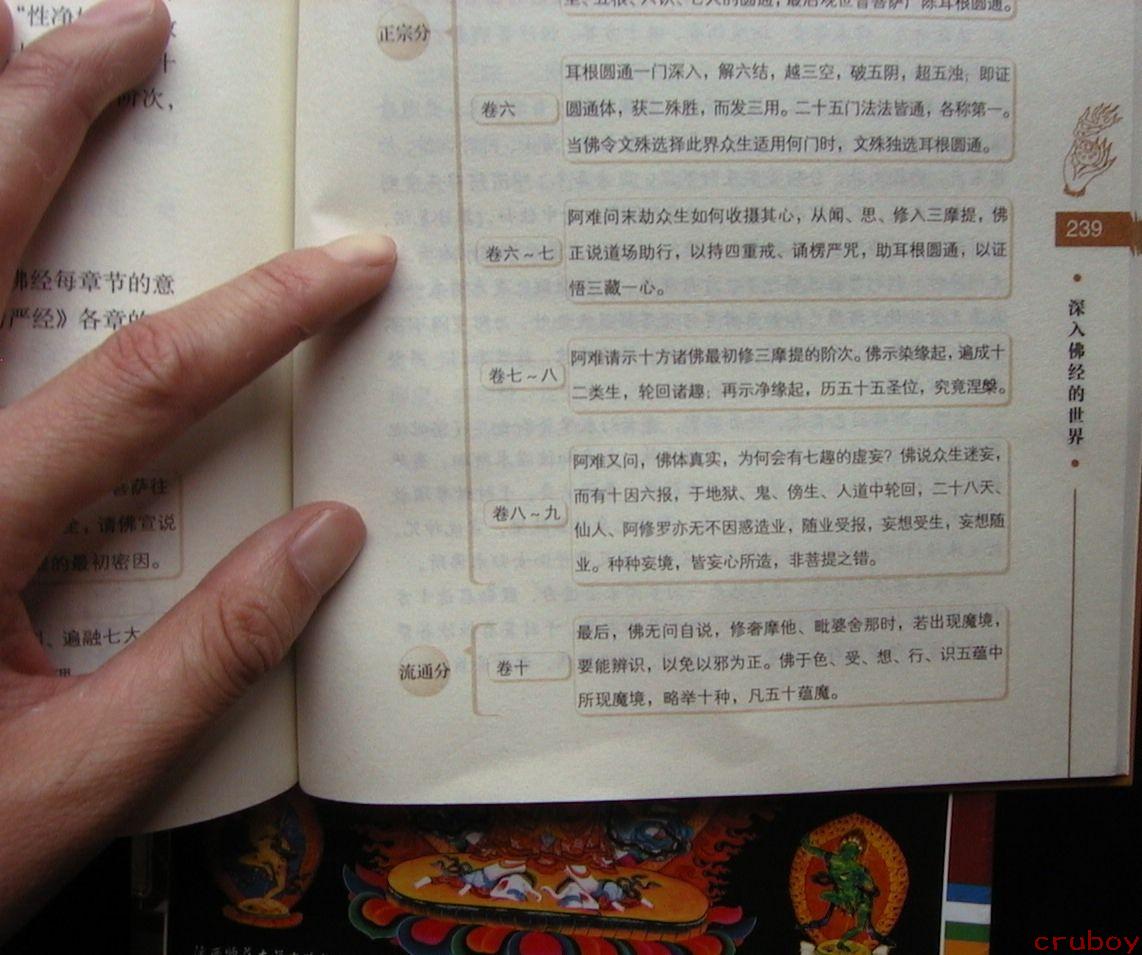 “性净
阶次，
佛经每章节的意
严经》各章的
菩萨往
，请佛宣说
的最初密因。
、遍融七大
至、五根、六识、七大的圆通，最后观世音菩萨广陈耳根圆通。
正宗分
卷六
耳根圆通一门深入，解六结，越三空，破五阴，超五浊；即证
圆通体，获二殊胜，而发三用。二十五门法法皆通，各称第一。
当佛令文殊选择此界众生适用何门时，文殊独选耳根圆通。
卷六~七
阿难问末劫众生如何收摄其心，从闻、思、修入三摩提，佛
正说道场助行，以持四重戒、诵楞严咒，助耳根圆通，以证
悟三藏一心。
卷七~八
阿难请示十方诸佛最初修三摩提的阶次。佛示染缘起，遍成十
二类生，轮回诸趣；再示净缘起，历五十五圣位，究竟涅槃。
卷八~九
阿难又问，佛体真实，为何会有七趣的虚妄？佛说众生迷妄，
而有十因六报，于地狱、鬼、傍生、人道中轮回，二十八天、
仙人、阿修罗亦无不因惑造业，随业受报，妄想受生，妄想随
业。种种妄境，皆妄心所造，非菩提之错。
流通分
卷十
最后，佛无问自说，修奢摩他、毗婆舍那时，若出现魔境，
要能辨识，以免以邪为正。佛于色、受、想、行、识五蕴中
所现魔境，略举十种，凡五十蕴魔。
239
深入佛经的世界
cruboy